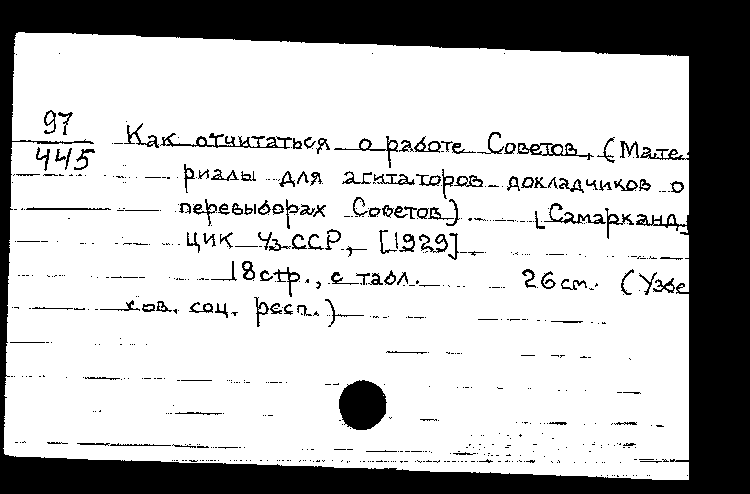 97
445
Как отчитаться о работе Советов. (Мате
риалы для агитаторов докладчиков о
перевыборах Советов). [Самарканд]
ЦИК УзССР, [1929].
18 стр., с табл. 26 см. (Узбе
ков. соц. респ.)